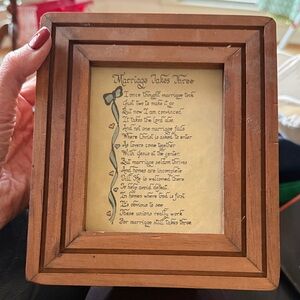 Marriage Takes Three
I once thought marriage took
Just two to make it go
But now I am convinced
It takes the Lord also
And not one marriage fails
Where Christ is asked to enter
As lovers come together
With Jesus at the center.
But marriage seldom thrives
And homes are incomplete
Till He is welcomed there
To help avoid defeat.
In homes where God is first
It's obvious to see
Those unions really work
For marriage still takes three